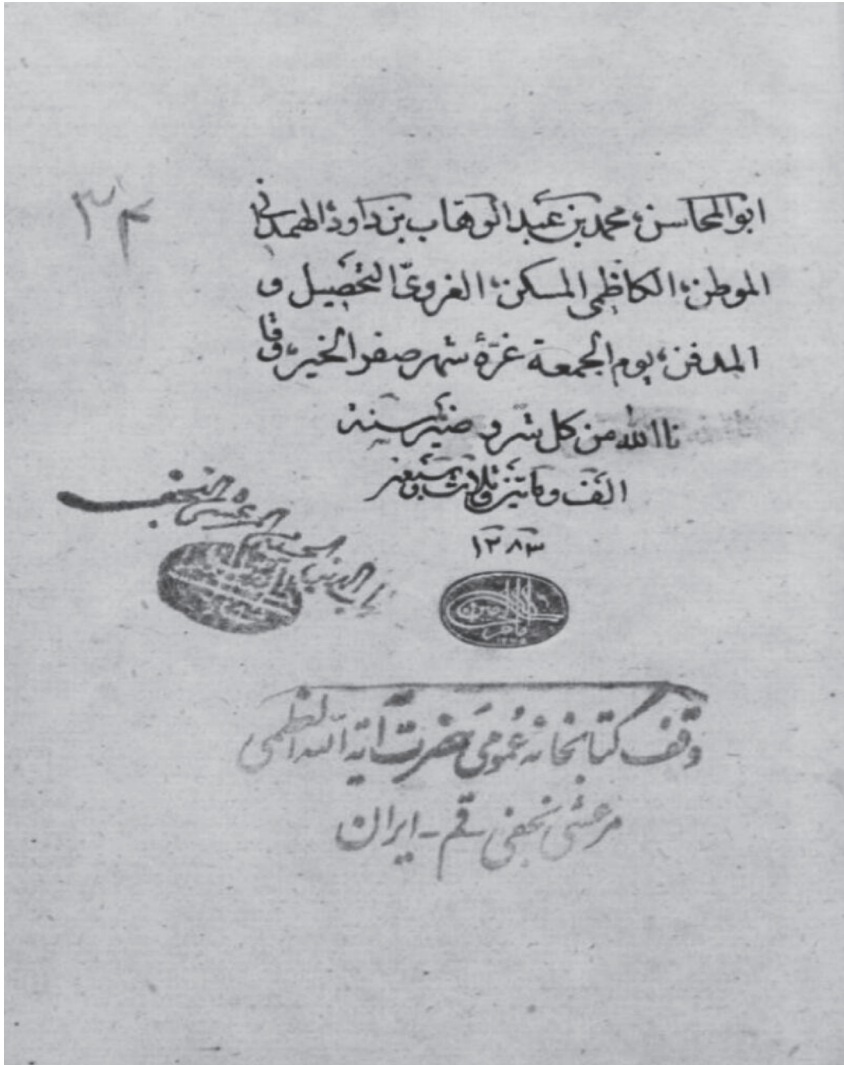 ابو المحاسن، محمد بن عبد الوهاب بن داود الهمدانی
الموطن، الکاظمی المسکن، الغروی التحصیل و
المدفن، یوم الجمعة غرة شهر صفر الخیر، وقا
نا الله من کل شر و ضیر سنة
الف و مأتین و ثلاث و
۱۲۸۳
۳۴
النجفی
وقف کتابخانه عمومی حضرت آیة الله العظمی
مرعشی نجفی قم - ایران